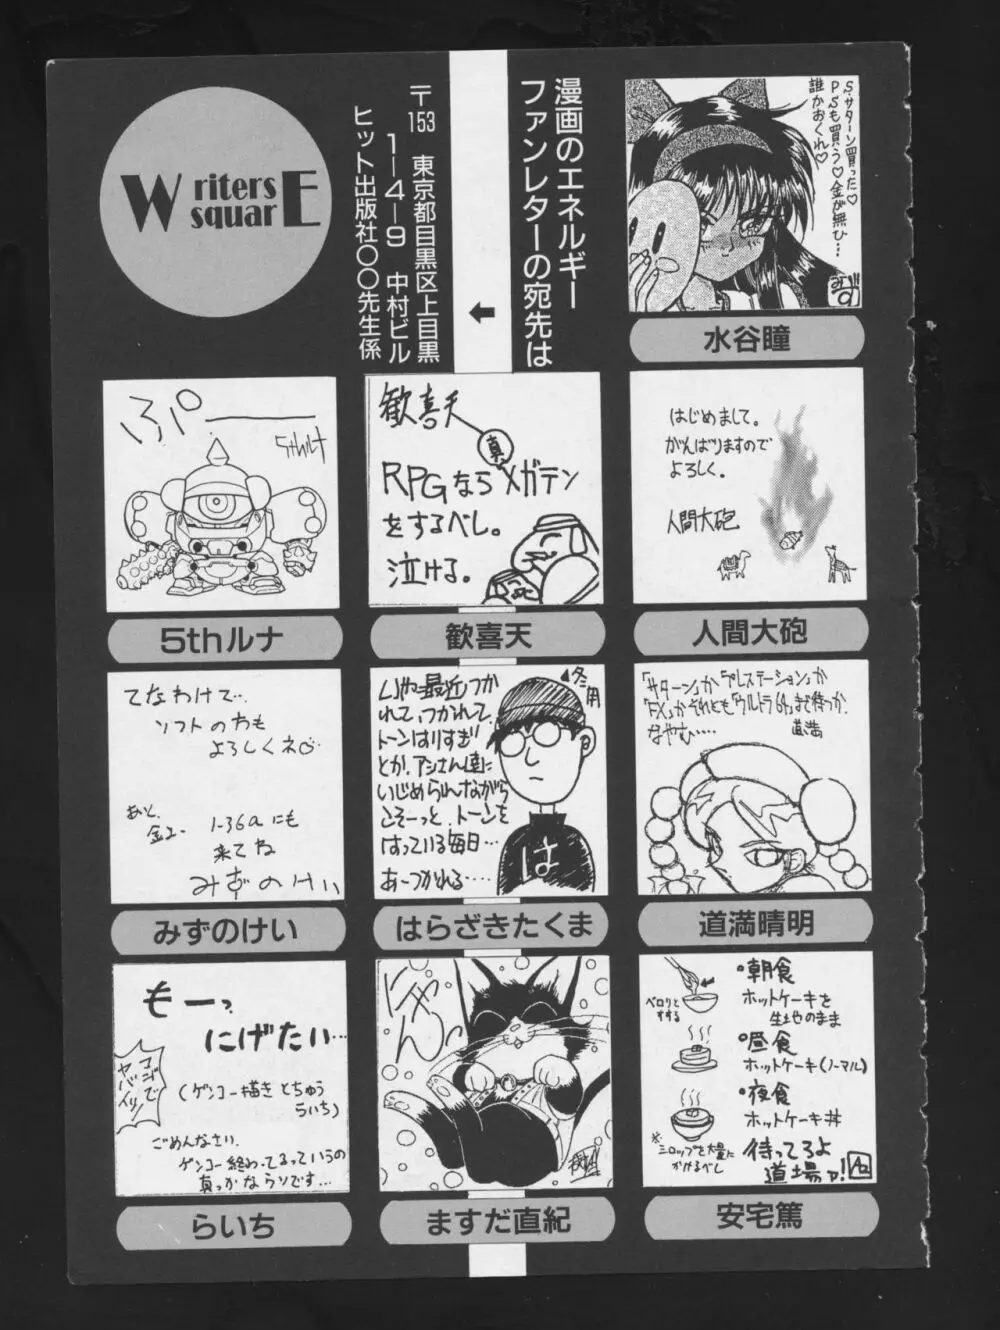 Writers squarE
漫画のエネルギー
ファンレターの宛先は
〒153 東京都目黒区上目黒
1-4-9 中村ビル
ヒット出版社〇〇先生係
S.サターン買った♡
PSも買う♡金が無ひ…
誰かおくれ♡
水谷瞳
ぷp
5thルナ
5thルナ
歓喜天
真
RPGならメガテン
をするべし。
泣ける。
歓喜天
はじめまして。
がんばりますので
よろしく。
人間大砲
人間大砲
てなわけで…
ソフトの方も
よろしくネ♡
あと、
1-36aにも
来てね
みずのけい
みずのけい
いや最近つか
れて、つかれて、
トーンはりすぎ
とか、アシさん達に
いじめられながら
こそーっと、トーンを
はっている毎日…
あーつかれる・・・・・
冬用
は
はらざきたくま
「サターン」か「プレステーション」か
「FX」かそれとも「ウルトラ64」まで待つか、
なやむ・・・・
道満
道満晴明
もーっ
にげたい…
コゴでヤバイッ
(ゲンコー描きとちゅう
らいち)
ごめんなさい、
ゲンコー終わってるっていうの
真っかなウソです…
らいち
にゃんっ
ますだ直紀
・朝食
ホットケーキを
生地のまま
ペロリと
すする
・昼食
ホットケーキ(ノーマル)
・夜食
ホットケーキ丼
※シロップを大量に
かけるべし
待ってろよ
道場ァ!
安宅篤